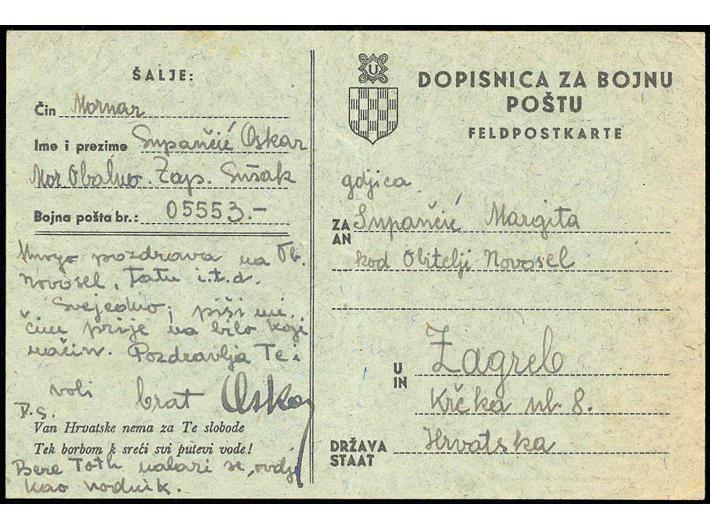 ŠALJE:
Čin Mornar
Ime i prezime Supančić Oskar
Mor. Obalno. Zap. Sušak
Bojna pošta br.: 05553.-
Mnogo pozdrava na Ob.
Novosel, Tatu i.t.d.
Svejedno; piši mi
čim prije na bilo koji
način. Pozdravlja Te i
voli brat Oskar
P.S.
Van Hrvatske nema za Te slobode
Tek borbom k sreći svi putevi vode!
Bere Toth nalazi se, ovdje
kao vodnik.
U
DOPISNICA ZA BOJNU
POŠTU
FELDPOSTKARTE
gdjica
ZA
AN Supančić Margita
kod Obitelji Novosel
U
IN Zagreb
Krčka ul. 8.
DRŽAVA
STAAT Hrvatska